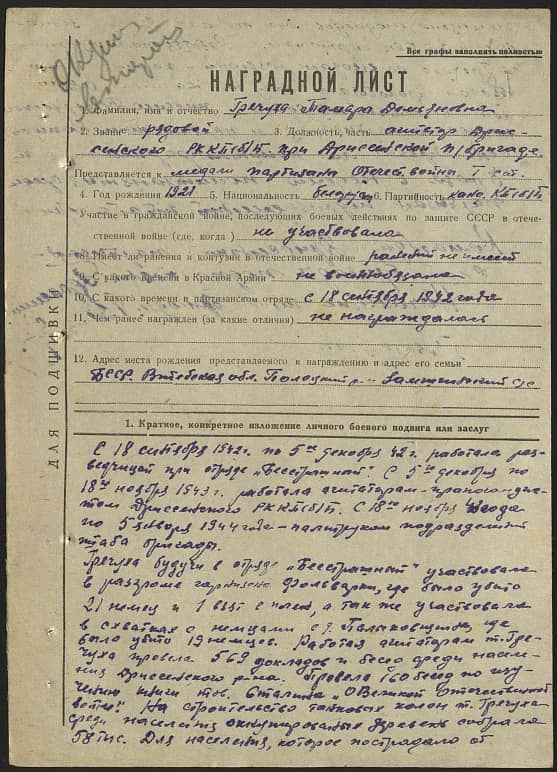 Все графы заполнять полностью
НАГРАДНОЙ ЛИСТ
1. Фамилия, имя и отчество Гречуха Тамара Демьяновна
2. Звание рядовой 3. Должность, часть агитатор Дрис-
сенского РККП(б)Б при Дриссенской п/бригаде
Представляется к медали партизана Отечест. войны I ст.
4. Год рождения 1921 5. Национальность белорус 6. Партийность канд. КП(б)Б
Участие в гражданской войне, последующих боевых действиях по защите СССР в отече-
ственной войне (где, когда) не участвовала
8. Имеет ли ранения и контузии в отечественной войне ранений не имеет
9. С какого времени в Красной Армии не военнообязана
10. С какого времени в партизанском отряде с 18 сентября 1942 года
11. Чем ранее награжден (за какие отличия) не награждалась
12. Адрес места рождения представляемого к награждению и адрес его семьи
БССР. Витебская обл. Полоцкий р-н с/с
ДЛЯ ПОДШИВКИ
1. Краткое, конкретное изложение личного боевого подвига или заслуг
С 18 сентября 1942 г. по 5ое декабря 42 г. работала раз-
ведчицей при отряде „Бесстрашный“. С 5ое декабря по
18ое ноября 1943 г. работала агитатором-пропагандис-
том Дриссенского РККП(б)Б. С 18ое ноября года
по 5 января 1944 года – политруком подразделений
штаба бригады.
Гречуха будучи в отряде „Бесстрашный“ участвовала
в разгроме гарнизона Фольварки, где было убито
21 немец и 1 взят в плен, а так же участвовала
в схватках с немцами с д. где
было убито 19 немцев. Работая агитатором т. Гре-
чуха провела 569 докладов и бесед среди насе-
ния Дриссенского р-на. Провела 160 бесед по изу-
чению книги тов. Сталина „О Великой Отечественной
войне“. На строительство танковых колон т. Гречуха
среди населения оккупированых деревень собрала
58 тыс. Для населения, которое пострадало от